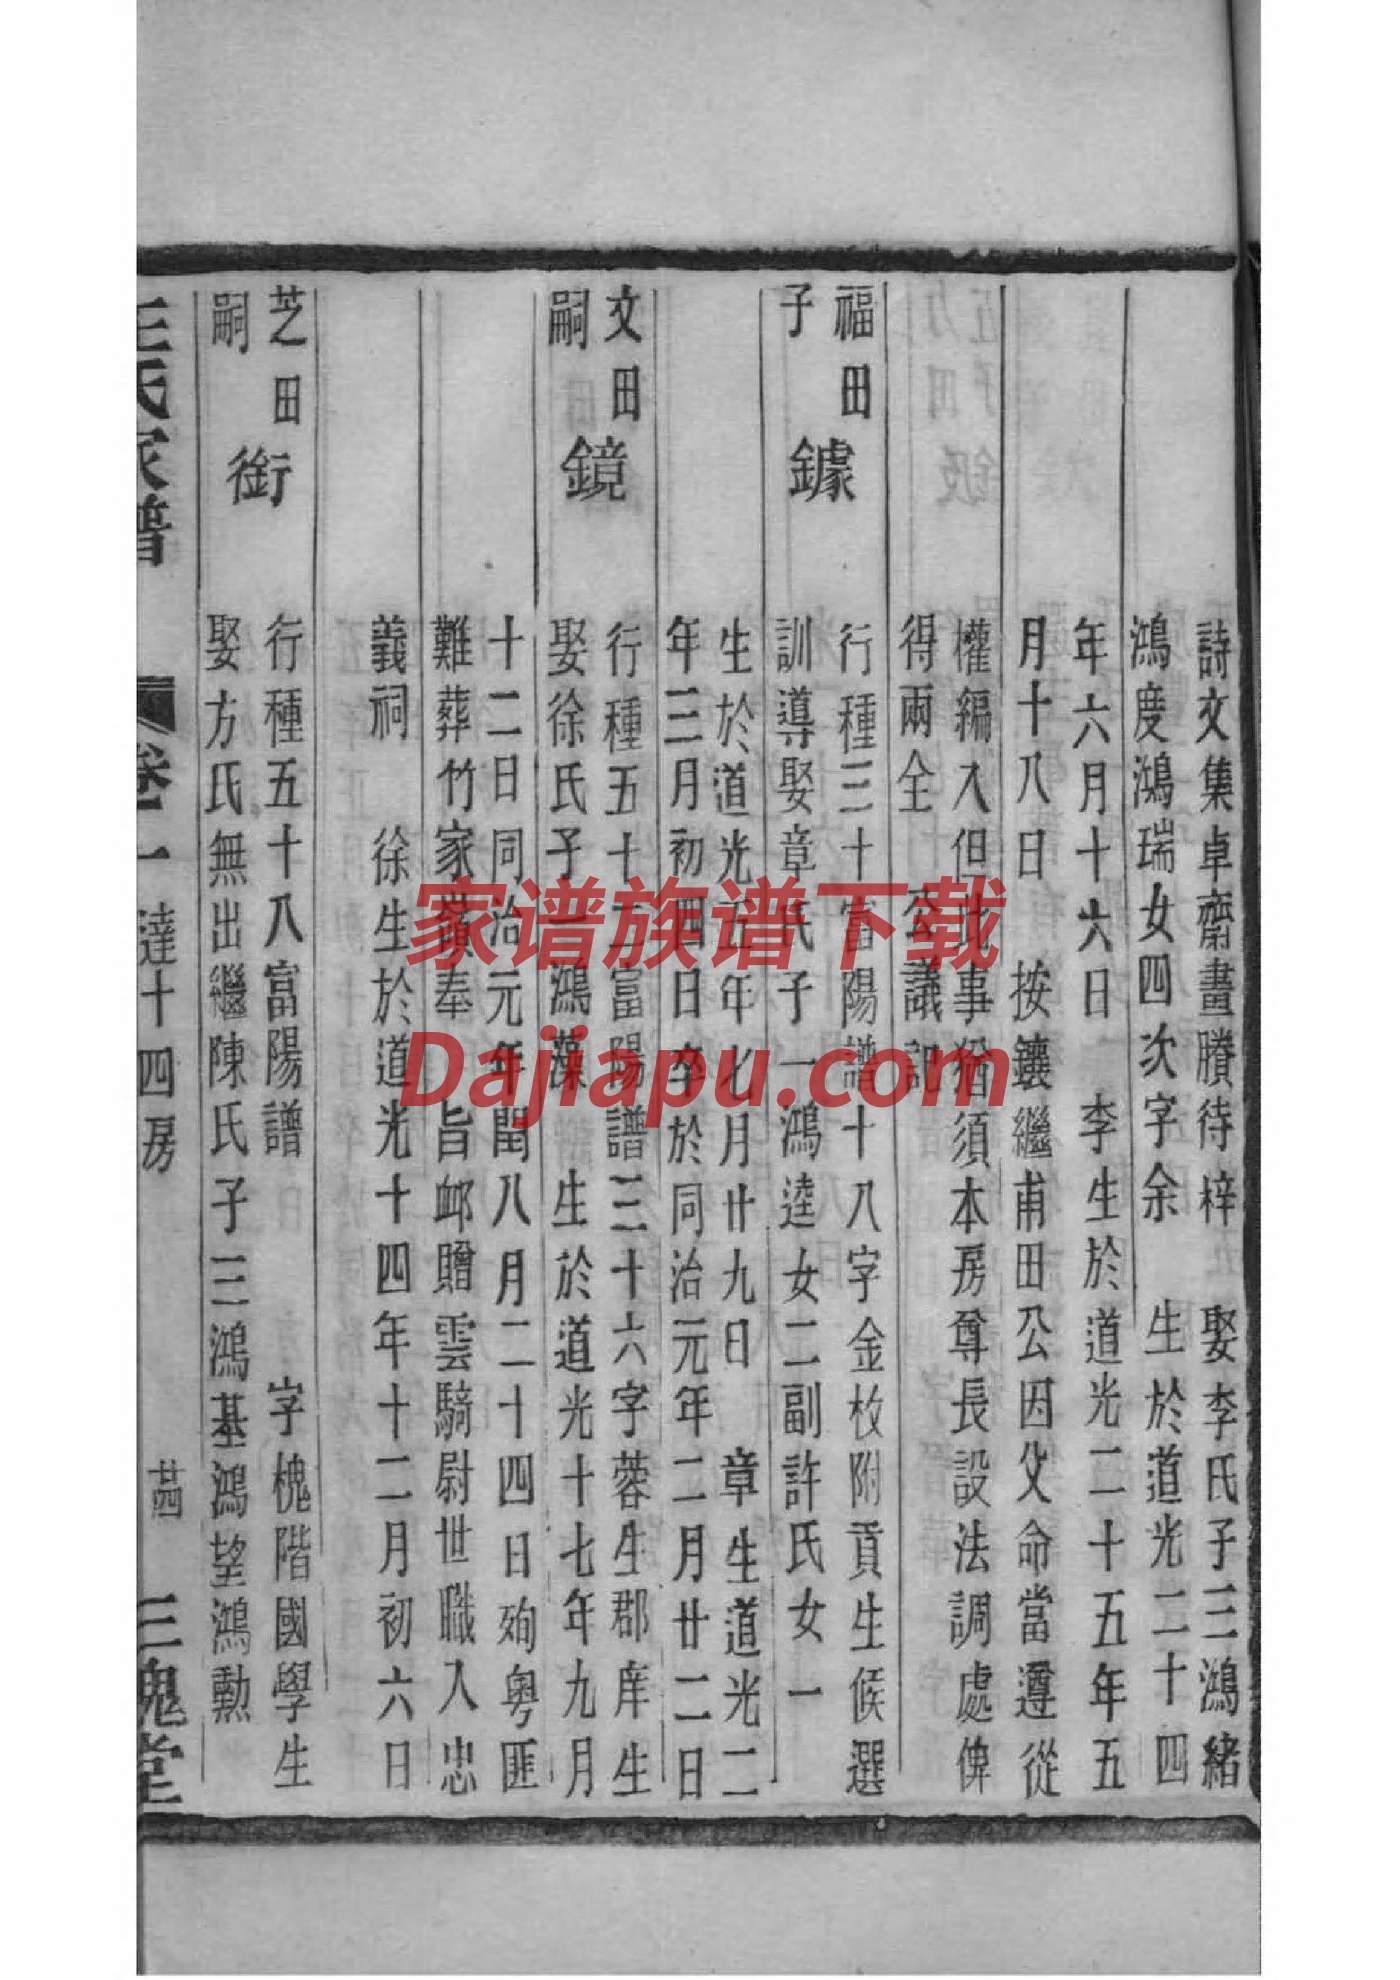 詩文集卓齋畫賸待梓 娶李氏子三鴻緒
鴻度鴻瑞女四次字余 生於道光二十四
年六月十六日 李生於道光二十五年五
月十八日 按鑲繼甫田公因父命當遵從
權編入但此事猶須本房尊長設法調處俾
得兩全 公議記
福田
子
鐻
行種三十富陽譜十八字金枚附貢生候選
訓導娶章氏子一鴻逵女二副許氏女一
生於道光五年七月廿九日 章生道光二
年三月初四日卒於同治元年二月廿二日
文田
嗣
鏡
行種五十二富陽譜三十六字蓉生郡庠生
娶徐氏子一鴻藻 生於道光十七年九月
十二日同治元年閏八月二十四日殉粵匪
難葬竹家嶺奉 旨卹贈雲騎尉世職入忠
義祠 徐生於道光十四年十二月初六日
芝田
嗣
銜
行種五十八富陽譜 字槐階國學生
娶方氏無出繼陳氏子三鴻基鴻望鴻勲
王氏家譜 卷一 達十四房 廿四 三槐堂
家谱族谱下载
Dajiapu.com